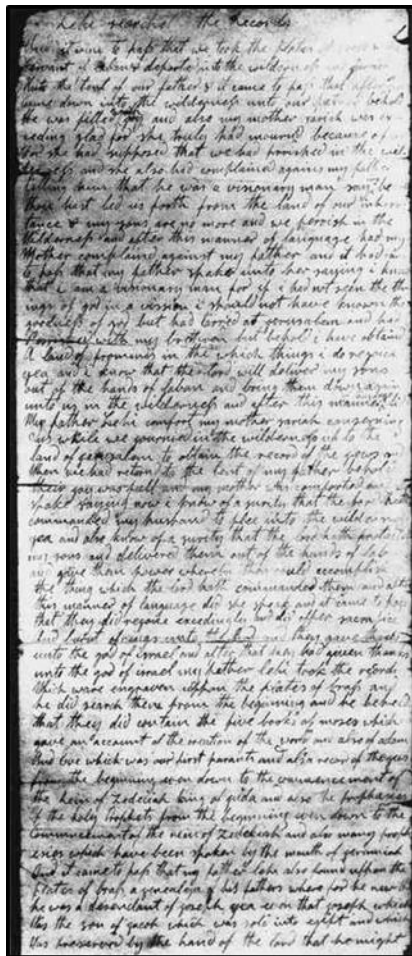 lehi searches the Records
it came to pass that we took the plates of
servant and departed into the wilderness and
unto the tent of our father & it came to pass that after
came down into the wilderness unto our father behold
he was filled with joy and also my mother sariah was ex
ceding glad for she truly had mourned because of
for she had supposed that we had perished in the wil
derness and she also had complained against my father
telling him that he was a visionary man saying be
thou hast led us forth from the land of our inher
tance & my sons are no more and we perish in the
wilderness and after this manner of language had my
Mother complained against my father and it had
to pass that my father spake unto her saying i know
that i am a visionary man for if i had not seen the th
ings of god in a vision i should not have known the
goodness of god but had tarried at jerusalem and had
perished with my brethren but behold i have obtain
a land of promise in the which things i do rejoice
yea and i know that the lord will deliver my sons
out of the hands of laban and bring them down again
unto us in the wilderness and after this manner
My father lehi comfort my mother sariah concerning
us while we journied in the wilderness up to the
land of jerusalem to obtain the record of the jews and
when we had returned to the tent of my father behold
their joy was full and my mother was comforted and
spake saying now i know of a surety that the lord hath
commanded my husband to flee into the wilderness
yea and also know of a surety that the lord hath protected
my sons and delivered them out of the hands of lab
and gave them power whereby they could accomplish
the thing which the lord hath commanded them and after
this manner of language did she speak and it came to pass
that they did rejoice exceedingly and did offer sacrifice
and burnt offerings unto the lord and they gave thanks
unto the god of israel and after that they had given thanks
unto the god of israel my father lehi took the records
which were engraven uppon the plates of brass and
he did search them from the beginning and he beheld
that they did contain the five books of moses which
gave an account of the creation of the world and also of adam
and eve which was our first parants and also a record of the jews
from the beginning even down to the commencement of
the reign of zedekiah king of juda and also the prophesies
of the holy prophets from the beginning even down to the
commencement of the reign of zedekiah and also many proph
esies which have been spoken by the mouth of jeremiah
and it came to pass that my father lehi also found uppon the
plates of brass a genealogy of his fathers wherefore he new that
he was a desendant of joseph yea even that joseph which
was the son of jacob which was sold into egypt and which
was preserved by the hand of the lord that he might